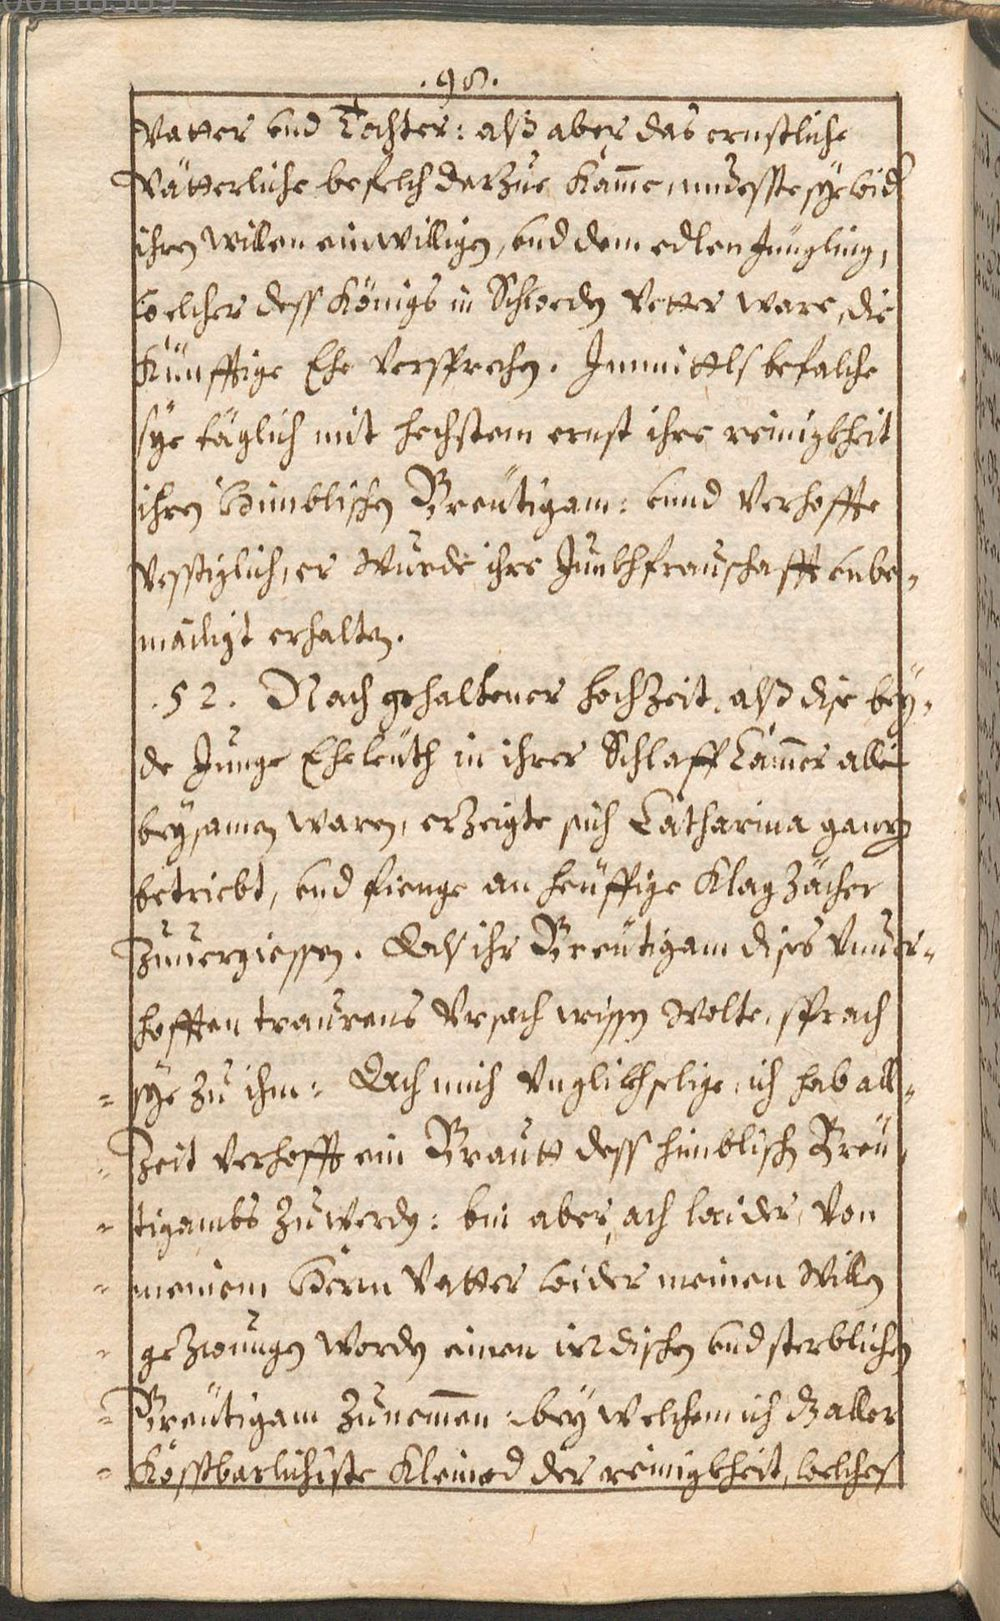 .98.
Vatter vnd Tochter: alß aber das ernstliche
Vätterliche befelch darzue kam̄e, muesste sye wid
ihren willen einwilligen, vnd dem edlen Jüngling,
welcher dess Königs in Schweden Vetter ware, die
künfftige Ehe versprechen. Inmittls befalche
sye täglich mit hechstem ernst ihre reinigkheit
ihren Himblischen Breütigam: vnnd verhoffte
vestiglich, er wurde ihre Junkhfrauschafft vnbe-
mailigt erhalten.
.52. Nach gehaltener hochzeit, alß dise bey-
de Junge Eheleuth in ihrer Schlaff Cam̄er allein
beysamen waren, erzeigte sich Catharina gantz
betriebt, vnd fienge an heüffige Klagzächer
zuuergiessen. Als ihr Breütigam dises vnuer-
hofften traurens Vrsach wissen wolte, sprach
sye zu ihm: Ach mich Vnglickhselige, ich hab all-
zeit verhofft ein Brautt dess himblischen Breü-
tigambs zuwerden: bin aber, ach laider, von
meinem Herrn Vatter wider meinen Willen
gezwungen worden einen irdischen vnd sterblichen
Breütigam zunem̄en: bey welchem ich dz aller
Kosstbarlichiste Kleinod der reinigkheit, welches